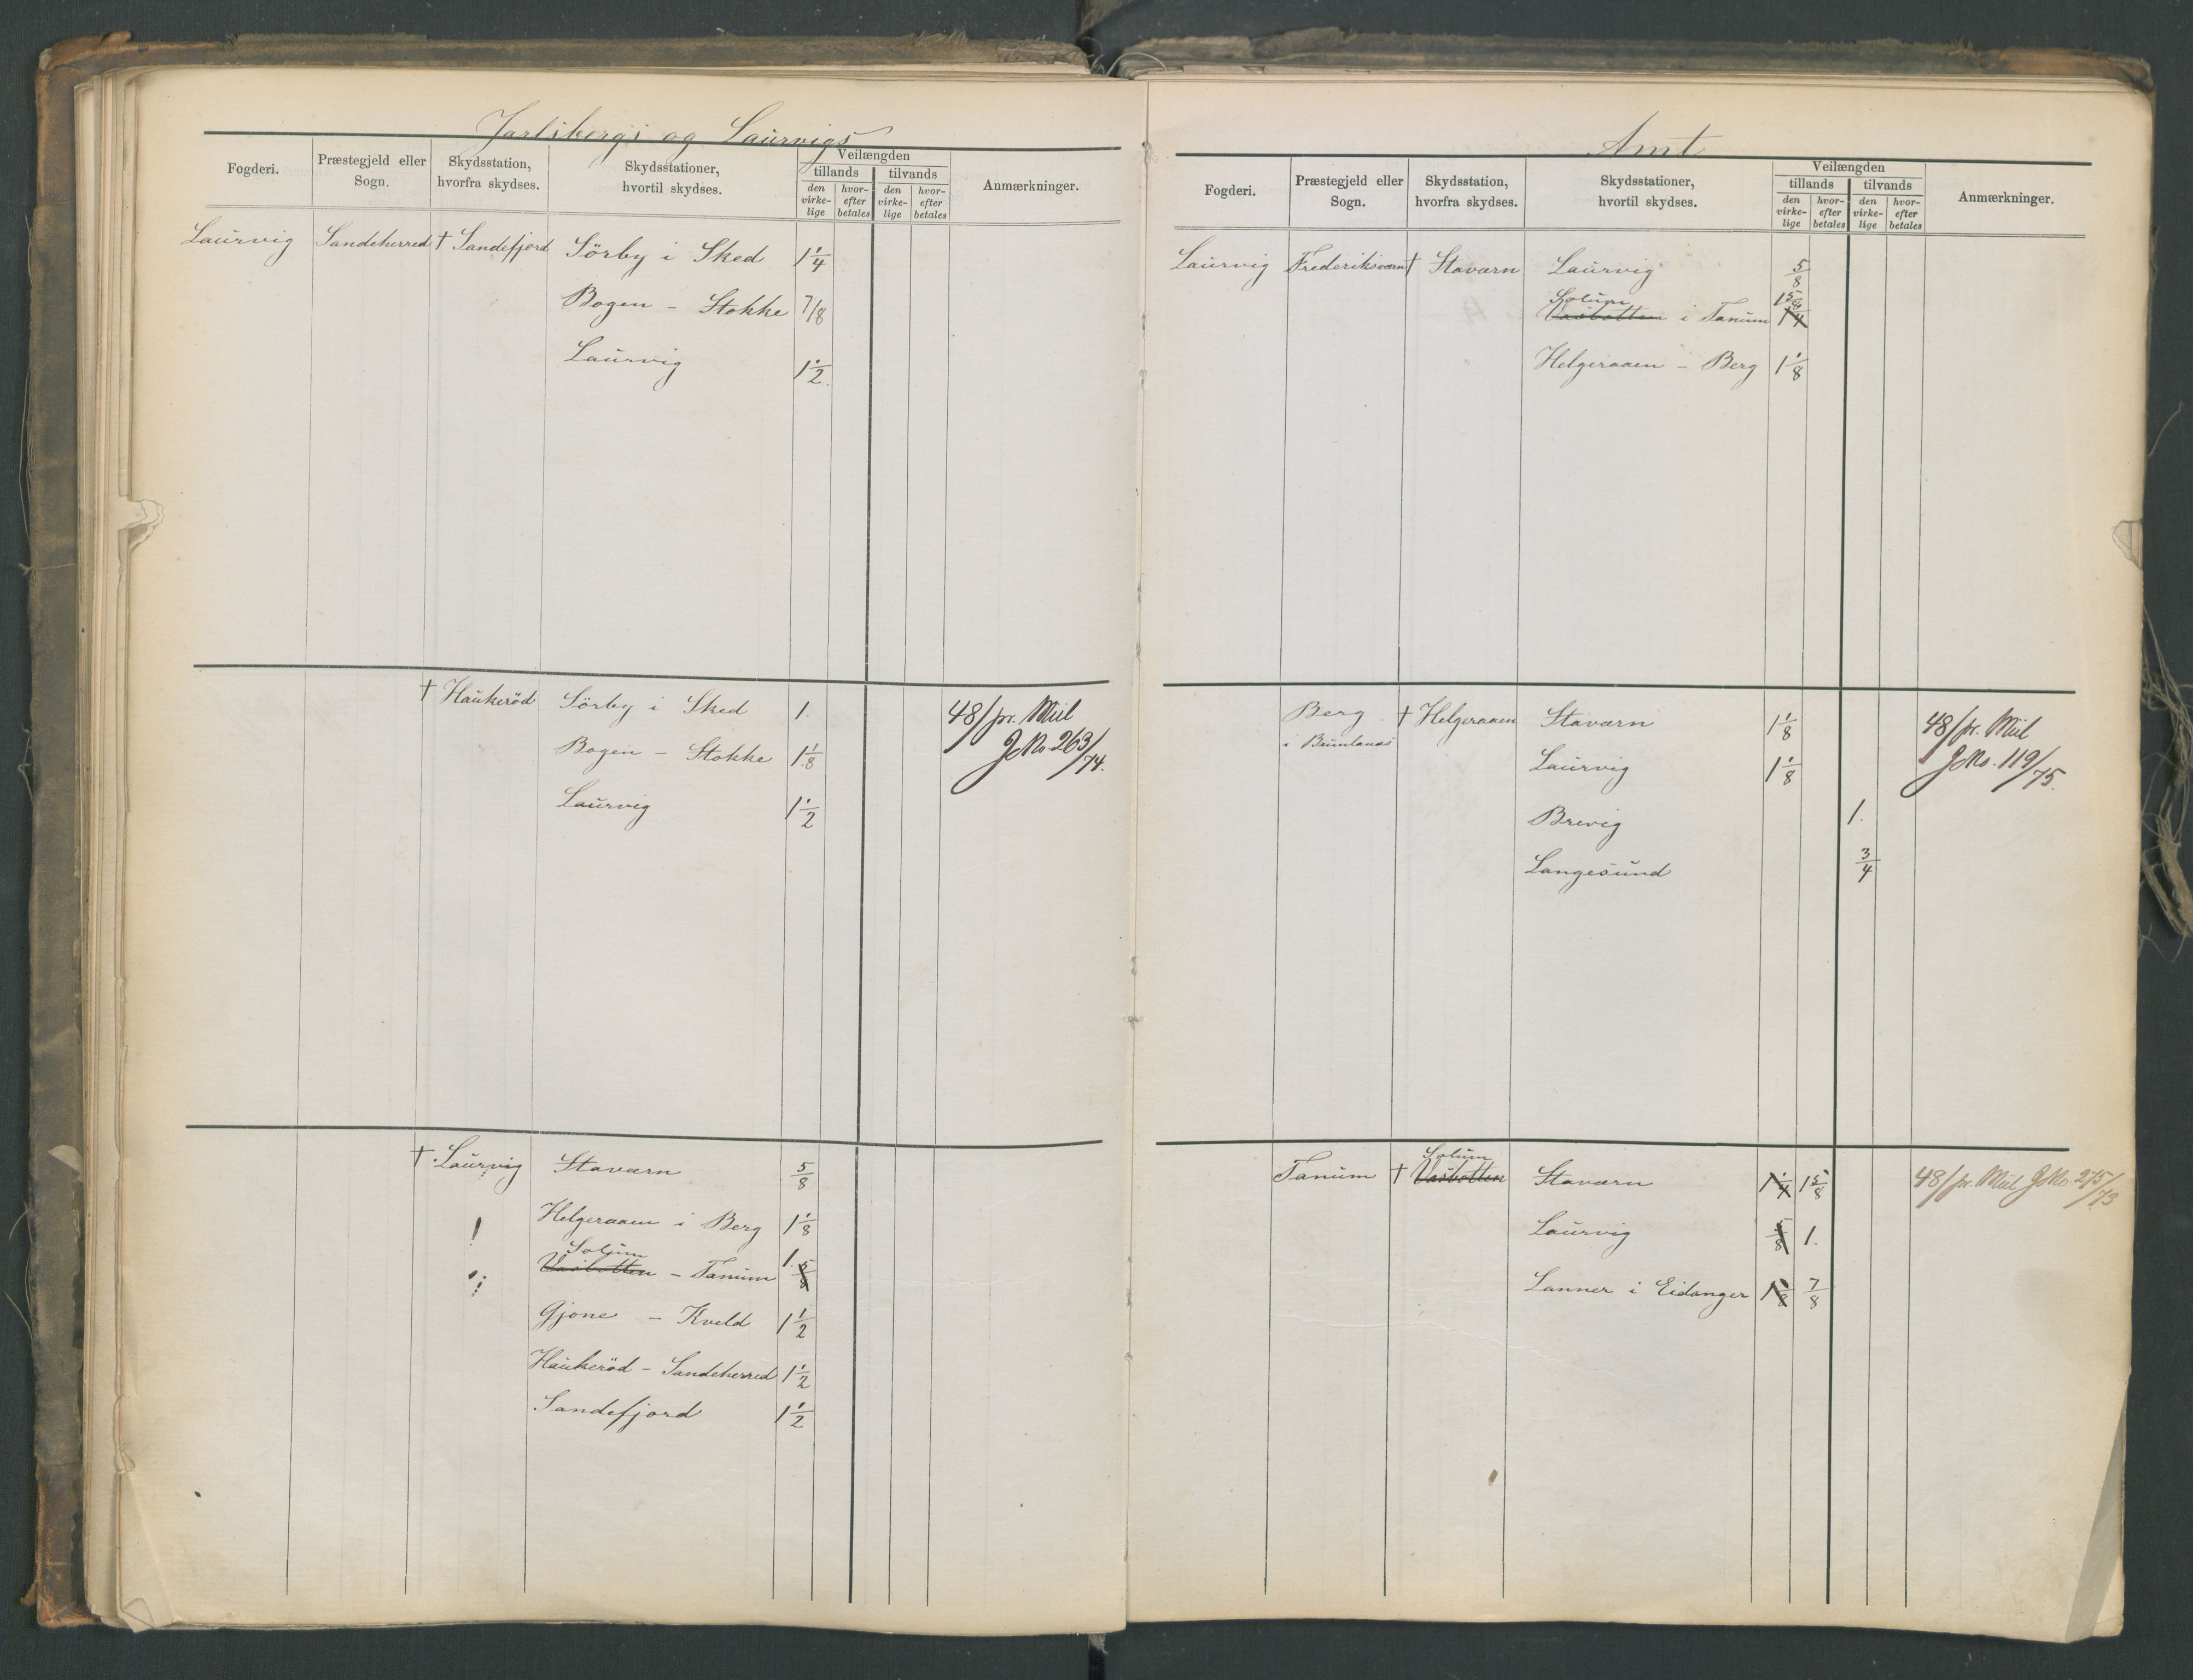 Jarlsbergs og Laurvigs
Fogderi. Præstegjeld eller Sogn. Skydsstation, hvorfra skydses. Skydsstationer, hvortil skydses. Veilængden tillands tilvands den virkelige hvorefter betales den virkelige hvorefter betales Anmærkninger.
Laurvig Sandeherred † Sandefjord Sörby i Sked 1 1/4
Bogen - Stokke 7/8
Laurvig 1 1/2.
† Haukeröd Sörby i Sked 1. 48/ pr. Miil
Bogen - Stokke 1 1/8 J.No. 263/74.
Laurvig 1 1/2
† Laurvig Staværn 5/8
Helgeraaen i Berg 1 1/8
Solum
Vasbotten - Tanum 1. 5/8
Gjone - Kveld 1 1/2
Haukeröd - Sandeherred 1 1/2
Sandefjord 1 1/2
Amt
Fogderi. Præstegjeld eller Sogn. Skydsstation, hvorfra skydses. Skydsstationer, hvortil skydses. Veilængden tillands tilvands den virkelige hvorefter betales den virkelige hvorefter betales Anmærkninger.
Laurvig Frederiksværn † Staværn Laurvig 5/8
Solum 1 5/8
Vasbotten i Tanum 1 1/4
Helgeraaen - Berg 1 1/8
Berg † Helgeraaen Staværn 1 1/8 48/ pr. Miil
i Brunlanæs
Laurvig 1 1/8 J.No. 119/75.
Brevig 1.
Langesund 3/4
Solum
Tanum † Vasbotten Staværn 1 1/4 1 5/8 48/ pr. Miil J.No. 275/73
Laurvig 5/8 1.
Lanner i Eidanger 1 1/8 7/8